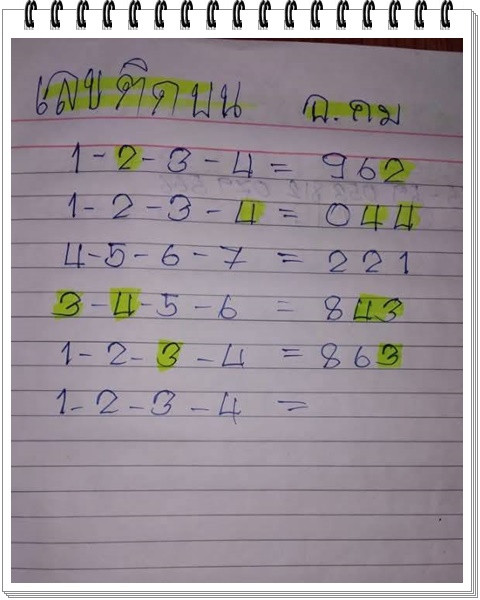 เลขติดบน ฉ.คม
1-2-3-4 = 962
1-2-3-4 = 044
4-5-6-7 = 221
3-4-5-6 = 843
1-2-3-4 = 863
1-2-3-4 =